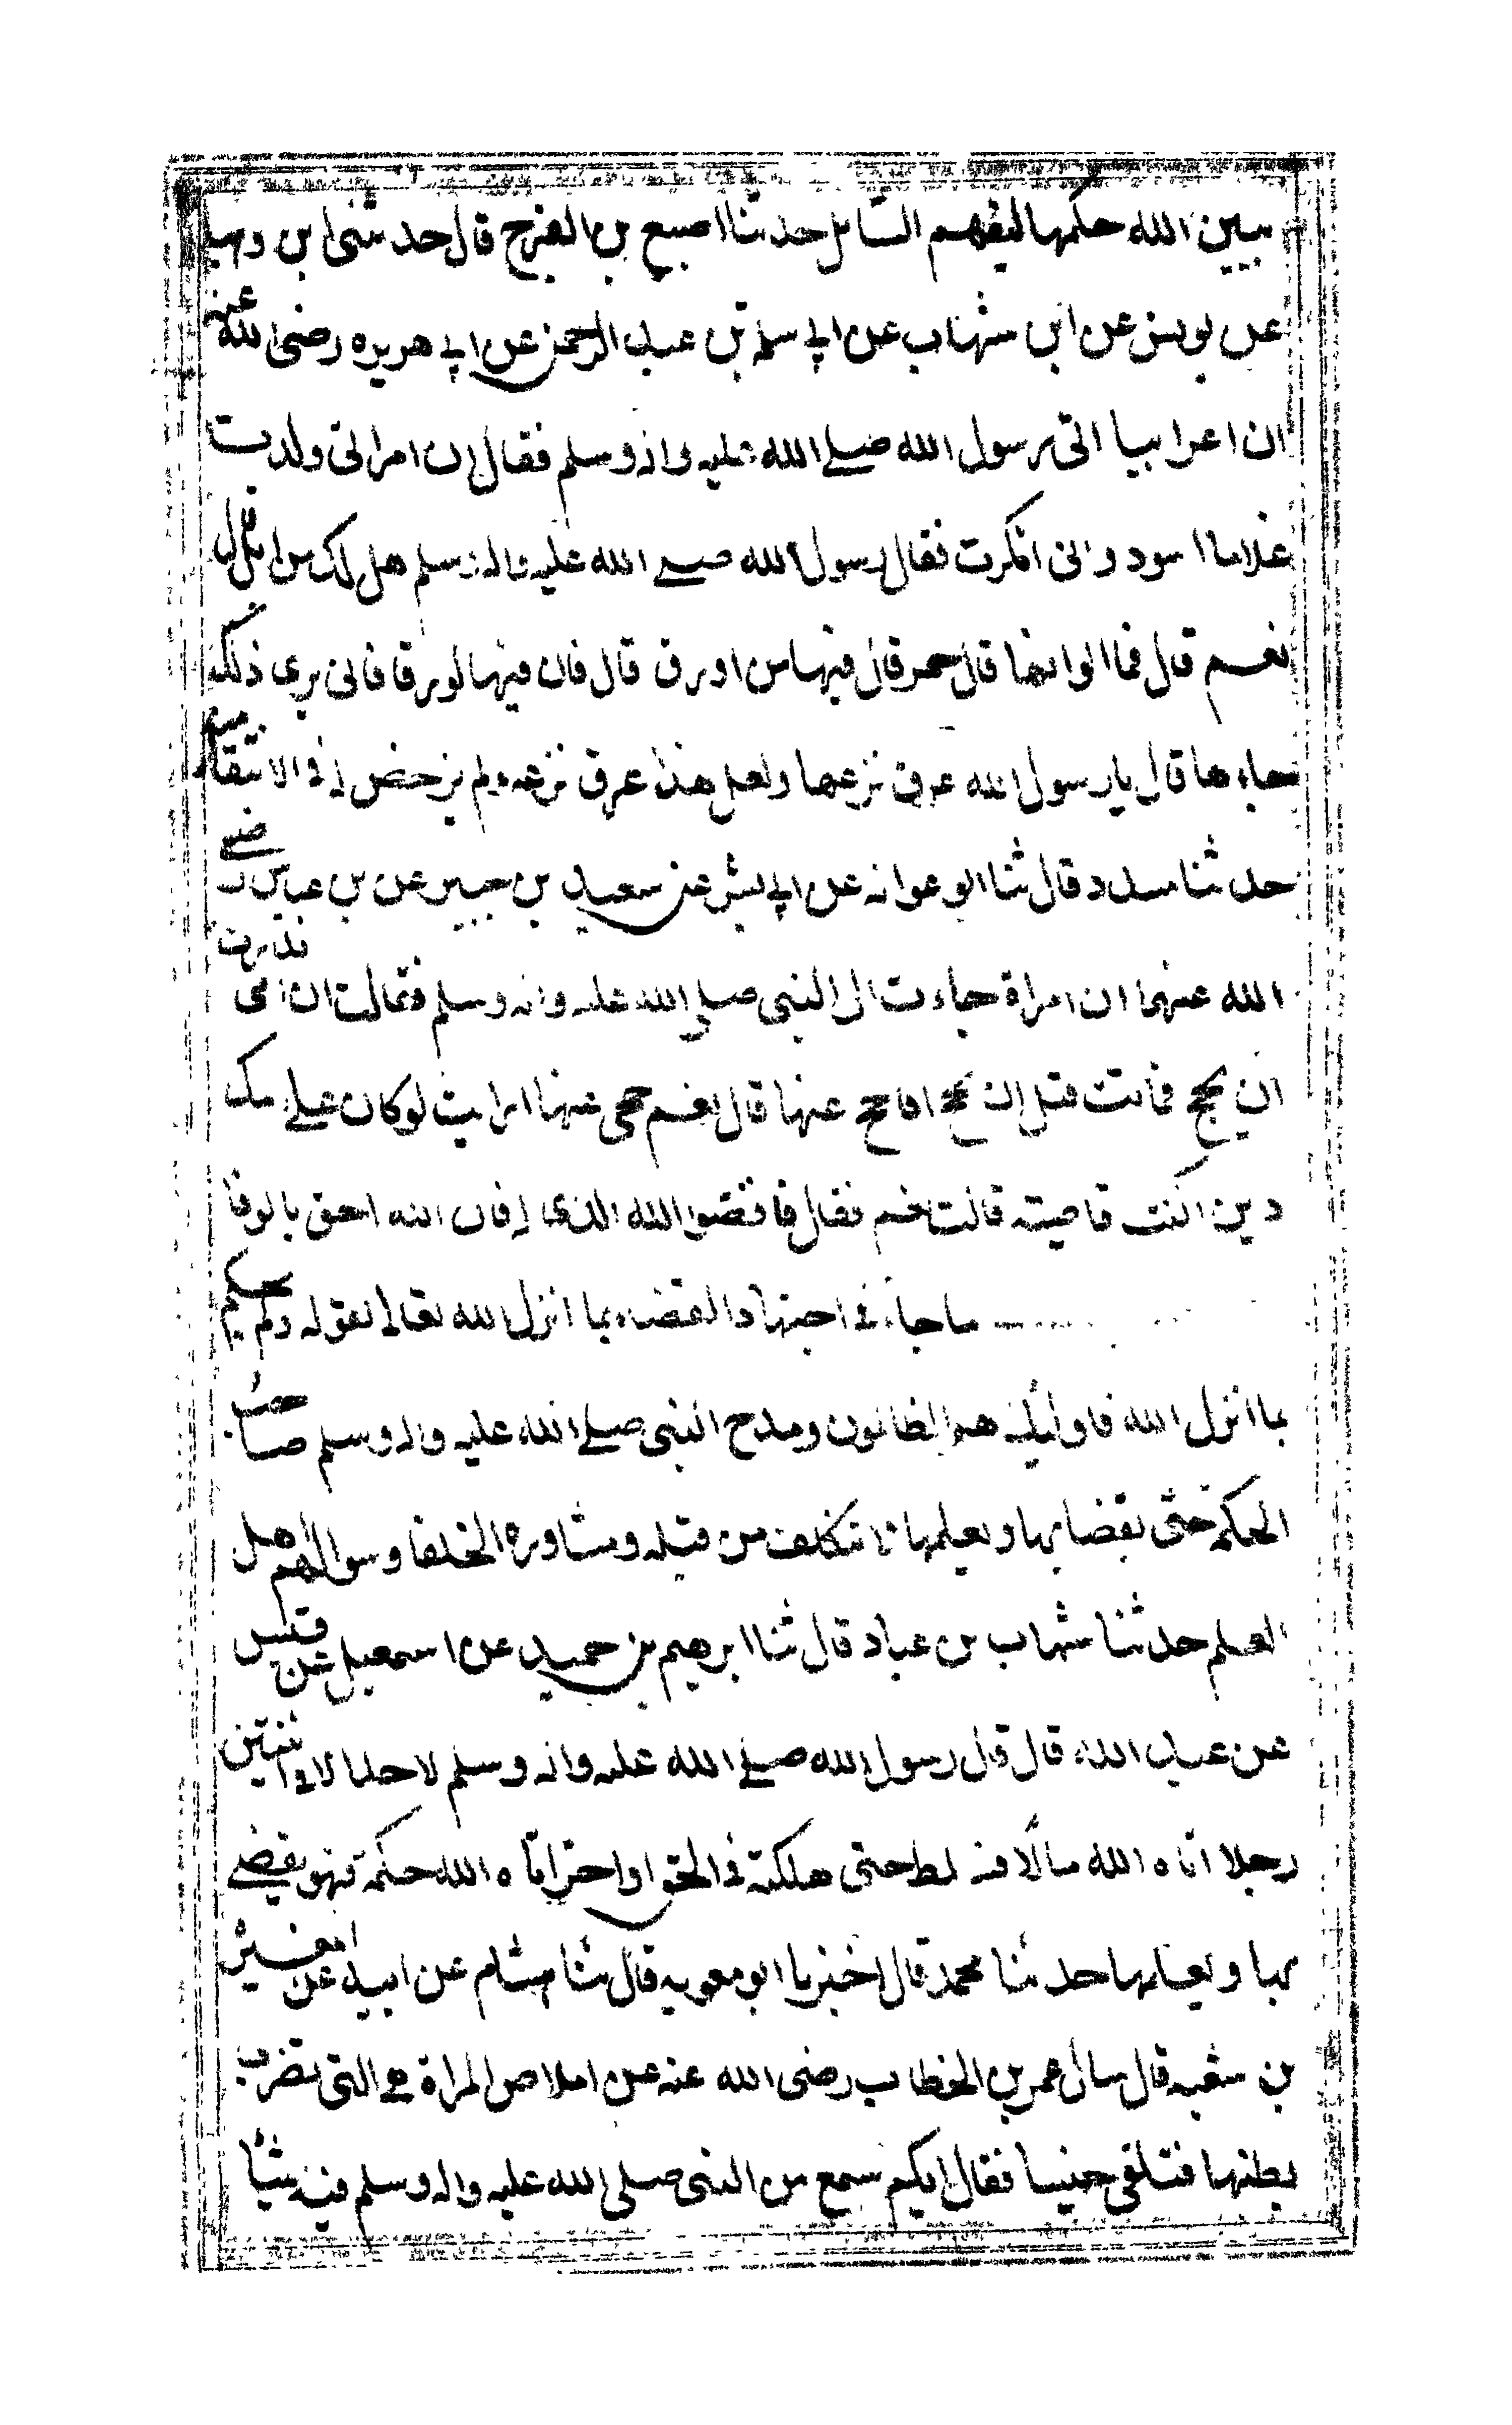 يبين الله حكمها ليفهم السّايل حدثنا اصبع بن الفرج قال حدثنى ابن وهب
عن يونس عن ابن شهاب عن ابى سلمة بن عبد الرحمن عن ابى هريره رضى الله عنه
ان اعرابيا اتى رسول الله صلے الله عليه واله وسلم فقال ان امراتى ولدت
غلاما اسود وانى انكرت فقال رسول الله صلے الله عليه واله وسلم هل لك من ابل قال
نعم قال فما الوانها قال حمر قال فيها من اورق قال فان فيها لورقا فانى ترى ذلك
جاءها قال يا رسول الله عرق نزعها ولعل هذا عرق نزعه ولم يرخص له فى الانتقا منه
حدثنا مسدد قال ثنا ابو عوانه عن ابى بشر عن سعيد بن جبير عن بن عباس رضے
الله عنهما ان امراة جاءت الى النبى صلى الله عليه واله وسلم فقالت ان امى نذرت
ان يحج فماتت قبل ان تحج افاحج عنها قال نعم حجى عنها ارايت لو كان علے امك
دين اكنت قاضيته قالت نعم فقال فاقضوا الله الذى له فان الله احق بالوفا
ماجاء فى اجتهاد القضاء بما انزل الله تعالى لقوله ومن لم يحكم
بما انزل الله فاوليك هم الظالمون ومدح النبى صلے الله عليه واله وسلم صاحب
الحكمة حتى يقضا بها ويعلمها لا يتكلف من قبله ومشاورة الخلفا وسوالهم اهل
العلم حدثنا شهاب بن عباد قال ثنا ابرهيم بن حميد عن اسمعيل عن قيس
عن عبد الله قال قال رسول الله صلے الله عليه واله وسلم لا حسدا لا فى اثنتين
رجلا اتاه الله مالا فسلط حتى هلكته فى الحق او اخر اتاه الله حكمة فهو يقضے
بها ويعلمها حدثنا محمد قال اخبرنا ابو معويه قال ثنا هشام عن ابيه عن المغيرة
بن شعبه قال سال عمر بن الخطاب رضى الله عنه عن املاص المراة هى التى تضرب
بطنها فتلقى جنينا فقال ايكم سمع من النبى صلى الله عليه واله وسلم فيه شيًا